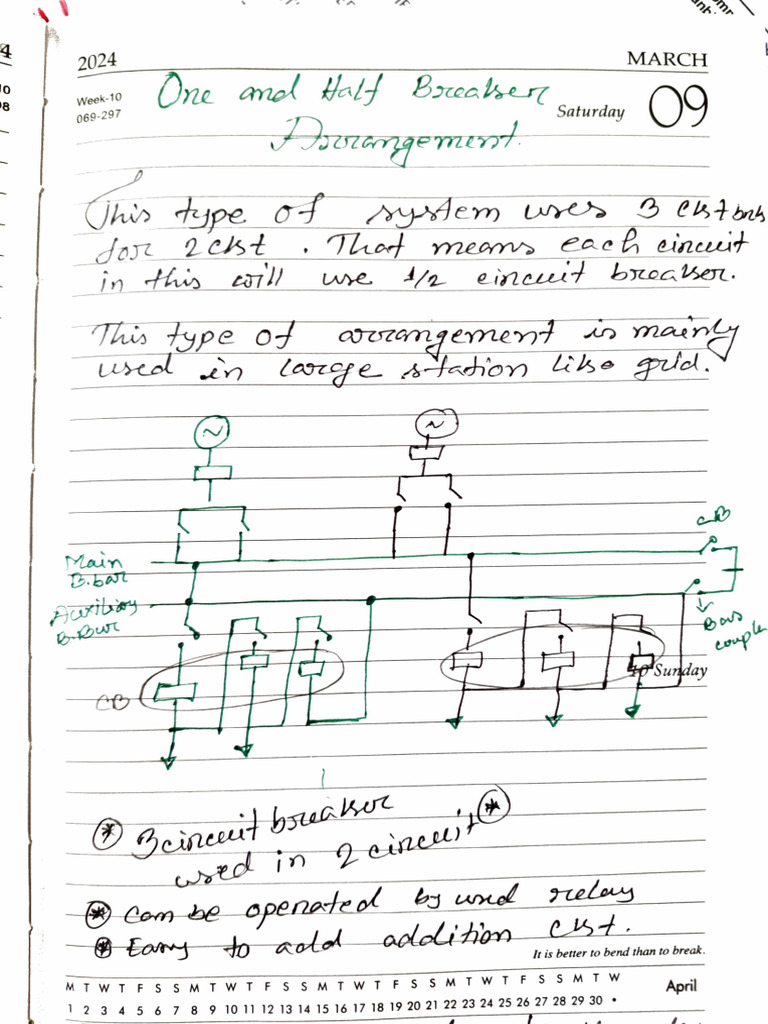 2024
MARCH
Week-10
069-297
One and Half Breaker
Saturday 09
Arrangement.
This type of system uses 3 ckt brk
for 2 ckt . That means each circuit
in this will use 1/2 circuit breaker.
This type of arrangement is mainly
used in large station like grid.
~ ~
CB
Main
B.bar
Auxiliary
B.Bar
Bus
couple
CB
10 Sunday
* 3 circuit breaker *
used in 2 circuit
* Can be operated by used relay
* Easy to add addition ckt.
It is better to bend than to break.
M T W T F S S M T W T F S S M T W T F S S M T W T F S S M T W
April
1 2 3 4 5 6 7 8 9 10 11 12 13 14 15 16 17 18 19 20 21 22 23 24 25 26 27 28 29 30 •